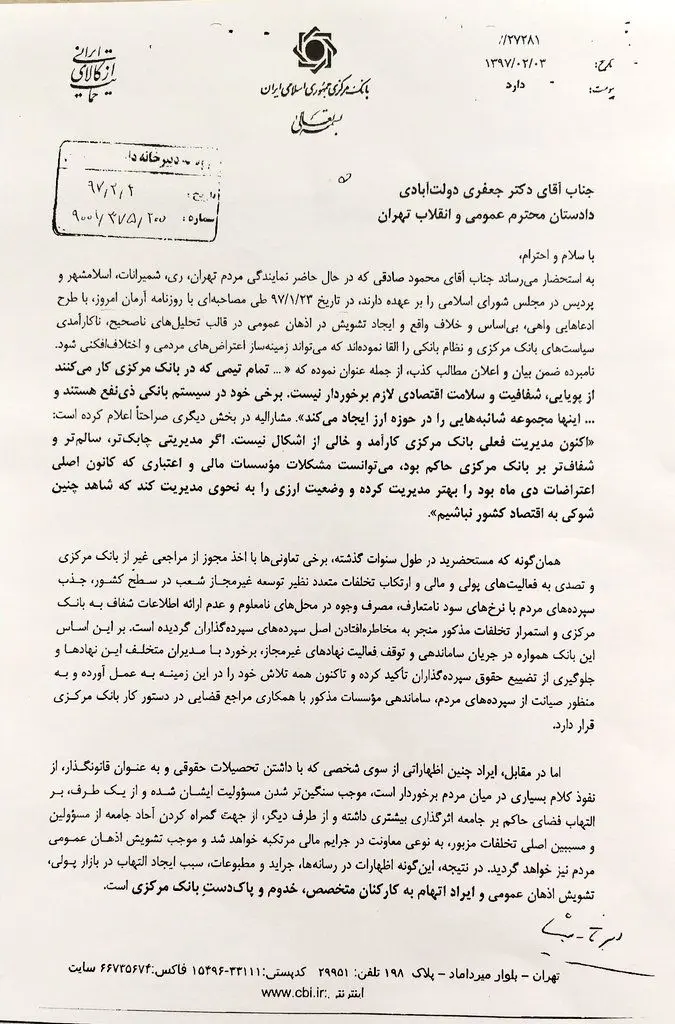 حمایت از کالای ایرانی
بانک مرکزی جمهوری اسلامی ایران
بسمه تعالی
//۲۷۲۸۱
تاریخ: ۱۳۹۷/۰۲/۰۳
پیوست: دارد
دبیرخانه
تاریخ: ۹۷/۲/۴
شماره: ۹۰۰۱/۴۷۵/۲۰۰
جناب آقای دکتر جعفری دولت‌آبادی
دادستان محترم عمومی و انقلاب تهران
با سلام و احترام،
به استحضار می‌رساند جناب آقای محمود صادقی که در حال حاضر نمایندگی مردم تهران، ری، شمیرانات، اسلامشهر و
پردیس در مجلس شورای اسلامی را بر عهده دارند، در تاریخ ۹۷/۱/۲۳ طی مصاحبه‌ای با روزنامه آرمان امروز، با طرح
ادعاهایی واهی، بی‌اساس و خلاف واقع و ایجاد تشویش در اذهان عمومی در قالب تحلیل‌های ناصحیح، ناکارآمدی
سیاست‌های بانک مرکزی و نظام بانکی را القا نموده‌اند که می‌تواند زمینه‌ساز اعتراض‌های مردمی و اختلاف‌افکنی شود.
نامبرده ضمن بیان و اعلان مطالب کذب، از جمله عنوان نموده که «... تمام تیمی که در بانک مرکزی کار می‌کنند
از پویایی، شفافیت و سلامت اقتصادی لازم برخوردار نیست. برخی خود در سیستم بانکی ذی‌نفع هستند و
... اینها مجموعه شائبه‌هایی را در حوزه ارز ایجاد می‌کند». مشارالیه در بخش دیگری صراحتاً اعلام کرده است:
«اکنون مدیریت فعلی بانک مرکزی کارآمد و خالی از اشکال نیست. اگر مدیریتی چابک‌تر، سالم‌تر و
شفاف‌تر بر بانک مرکزی حاکم بود، می‌توانست مشکلات مؤسسات مالی و اعتباری که کانون اصلی
اعتراضات دی ماه بود را بهتر مدیریت کرده و وضعیت ارزی را به نحوی مدیریت کند که شاهد چنین
شوکی به اقتصاد کشور نباشیم».
همان‌گونه که مستحضرید در طول سنوات گذشته، برخی تعاونی‌ها با اخذ مجوز از مراجعی غیر از بانک مرکزی
و تصدی به فعالیت‌های پولی و مالی و ارتکاب تخلفات متعدد نظیر توسعه غیرمجاز شعب در سطح کشور، جذب
سپرده‌های مردم با نرخ‌های سود نامتعارف، مصرف وجوه در محل‌های نامعلوم و عدم ارائه اطلاعات شفاف به بانک
مرکزی و استمرار تخلفات مذکور منجر به مخاطره‌افتادن اصل سپرده‌های سپرده‌گذاران گردیده است. بر این اساس
این بانک همواره در جریان ساماندهی و توقف فعالیت نهادهای غیرمجاز، برخورد با مدیران متخلف این نهادها و
جلوگیری از تضییع حقوق سپرده‌گذاران تأکید کرده و تاکنون همه تلاش خود را در این زمینه به عمل آورده و به
منظور صیانت از سپرده‌های مردم، ساماندهی مؤسسات مذکور با همکاری مراجع قضایی در دستور کار بانک مرکزی
قرار دارد.
اما در مقابل، ایراد چنین اظهاراتی از سوی شخصی که با داشتن تحصیلات حقوقی و به عنوان قانونگذار، از
نفوذ کلام بسیاری در میان مردم برخوردار است، موجب سنگین‌تر شدن مسؤولیت ایشان شده و از یک طرف، بر
التهاب فضای حاکم بر جامعه اثرگذاری بیشتری داشته و از طرف دیگر، از جهت گمراه کردن آحاد جامعه از مسؤولین
و مسببین اصلی تخلفات مزبور، به نوعی معاونت در جرایم مالی مرتکبه خواهد شد و موجب تشویش اذهان عمومی
مردم نیز خواهد گردید. در نتیجه، این‌گونه اظهارات در رسانه‌ها، جراید و مطبوعات، سبب ایجاد التهاب در بازار پولی،
تشویش اذهان عمومی و ایراد اتهام به کارکنان متخصص، خدوم و پاک‌دستِ بانک مرکزی است.
تهران - بلوار میرداماد - پلاک ۱۹۸ تلفن: ۲۹۹۵۱ کدپستی: ۳۳۱۱۱-۱۵۴۹۶ فاکس: ۶۶۷۳۵۶۷۴ سایت
اینترنتی: www.cbi.ir